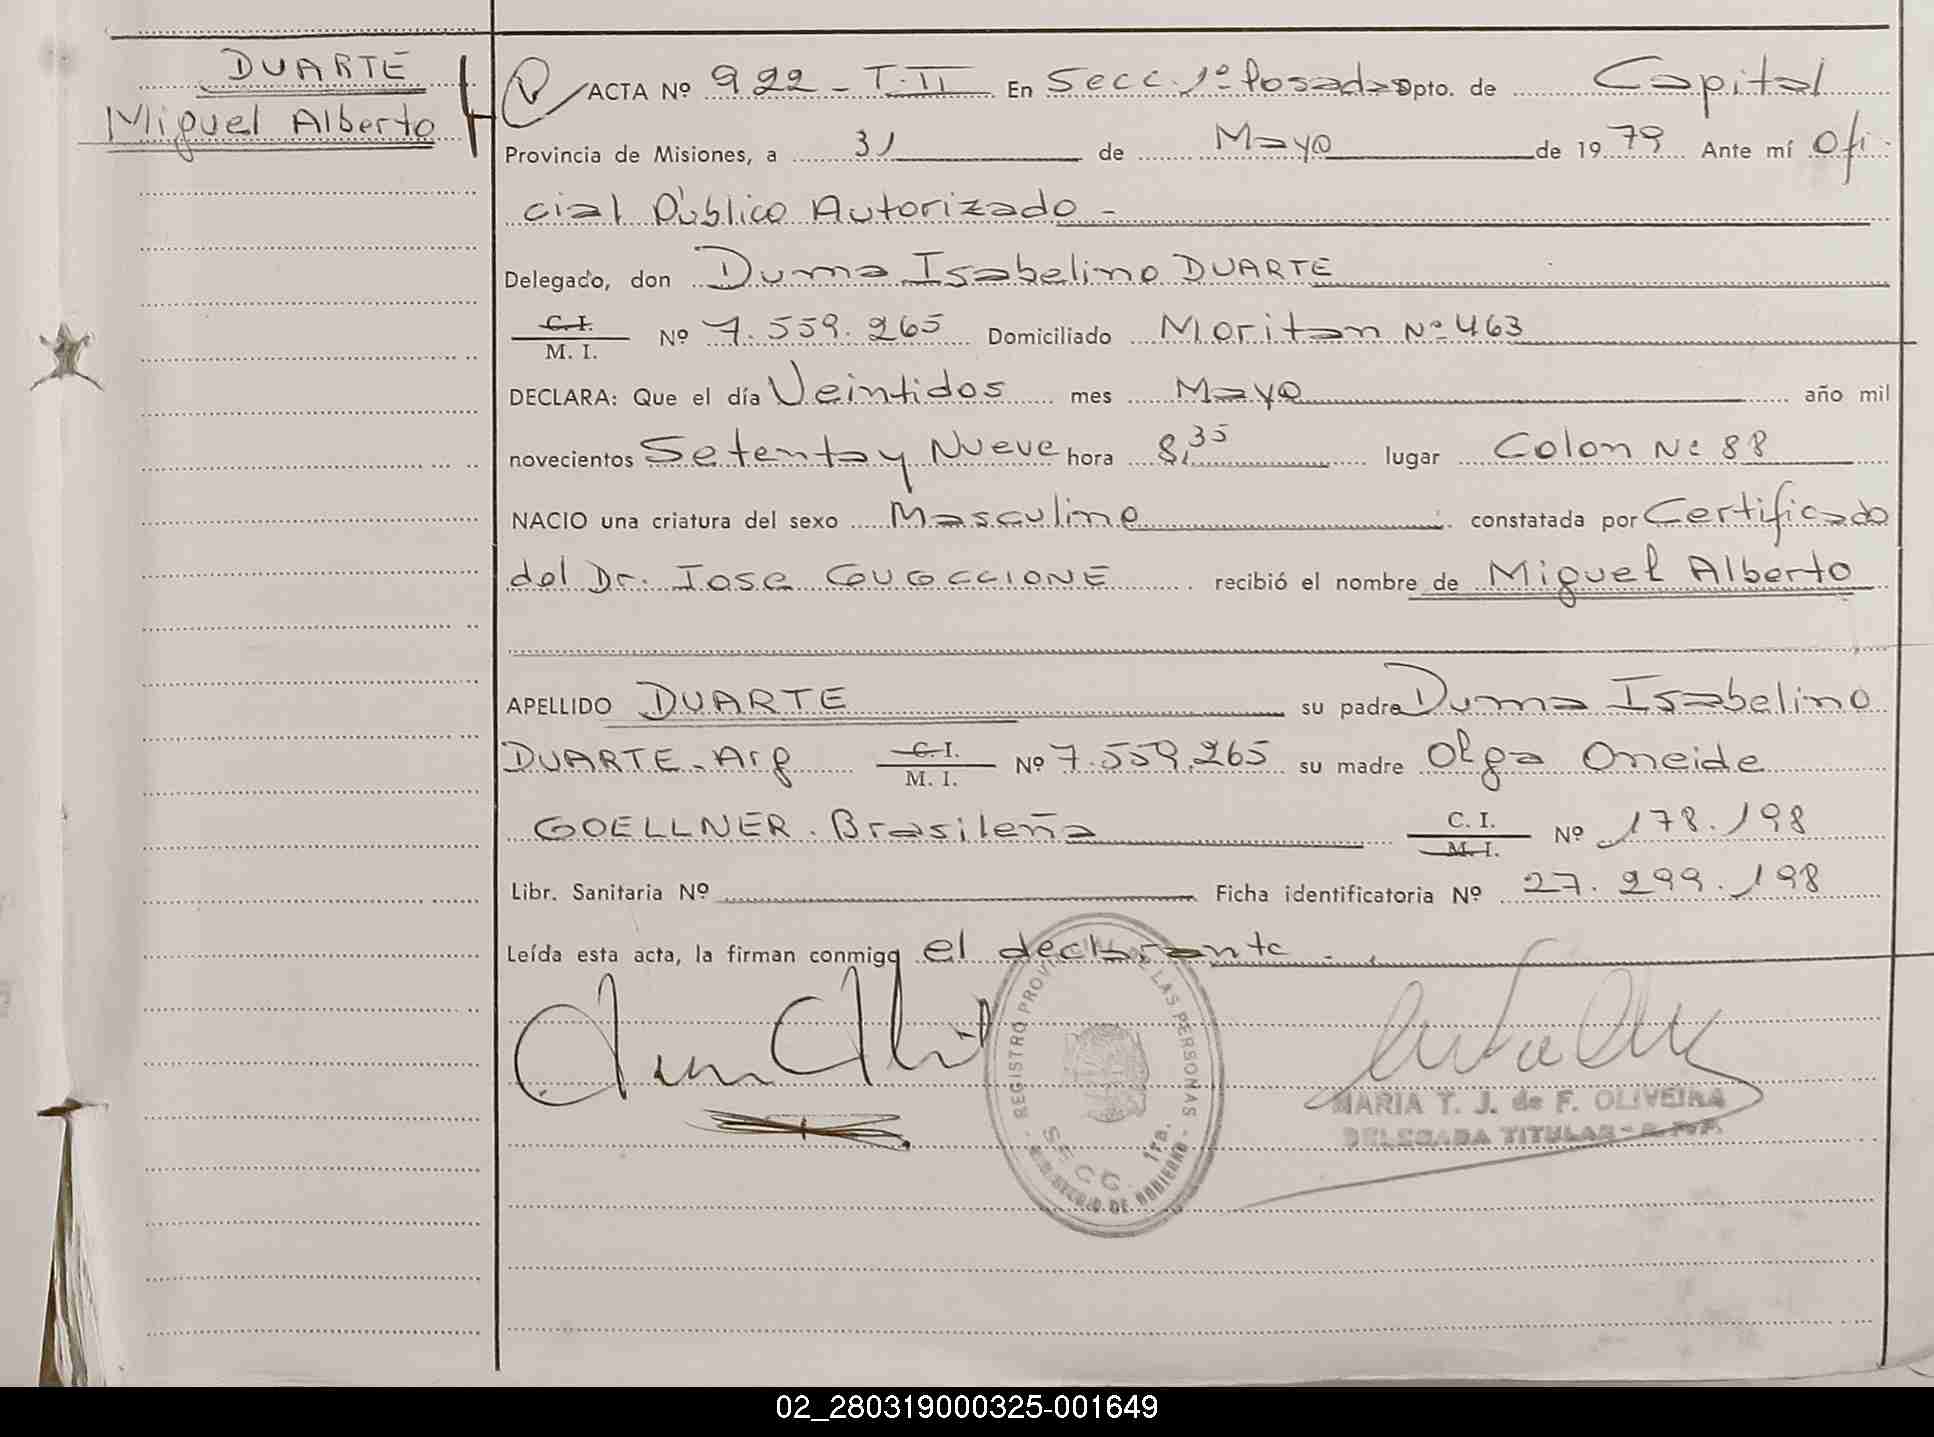 DUARTE
Miguel Alberto
ACTA Nº 922 - T. II En Secc. 1º Posadas Dpto. de Capital
Provincia de Misiones, a 31 de Mayo de 1979 Ante mí Ofi-
cial Público Autorizado -
Delegado, don Duma Isabelino DUARTE
C. I. / M. I. Nº 7.559.265 Domiciliado Moritan Nº 463
DECLARA: Que el día Veintidos mes Mayo año mil
novecientos Setenta y Nueve hora 8,35 lugar Colon Nº 88
NACIO una criatura del sexo Masculino constatada por Certificado
del Dr. Jose GUCCIONE recibió el nombre de Miguel Alberto
APELLIDO DUARTE su padre Duma Isabelino
DUARTE - Arg C. I. / M. I. Nº 7.559.265 su madre Olga Oneide
GOELLNER. Brasileña C. I. / M. I. Nº 178.198
Libr. Sanitaria Nº Ficha identificatoria Nº 27.299.198
Leída esta acta, la firman conmigo el declarante -.
REGISTRO PROVINCIAL DE LAS PERSONAS
SECC. 1ra.
MINISTERIO DE GOBIERNO
MARIA T. J. de F. OLIVEIRA
DELEGADA TITULAR - R. P. P.
02_280319000325-001649